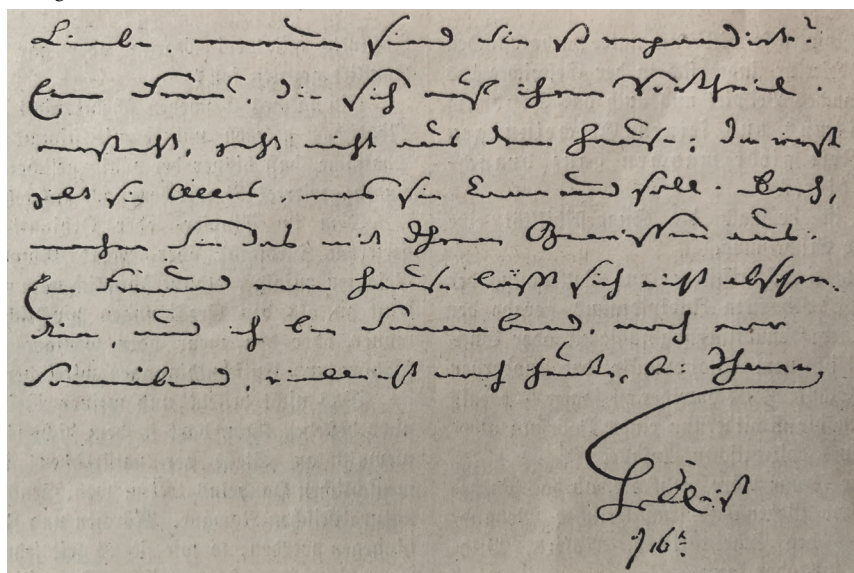 Liebe, warum sind Sie so repandirt?
Eine Frau, die sich auf ihren Vortheil
versteht, geht nicht aus dem Hause; da erst
gilt sie Alles, was sie kann und soll. Doch,
machen Sie das mit Ihrem Gewissen aus.
Ein Freund vom Hause läßt sich nicht abschre-
cken, und ich bin Sonnabend, noch vor
Sonnabend, vielleicht noch heute, bei Ihnen.
H. v. Kleist
16t